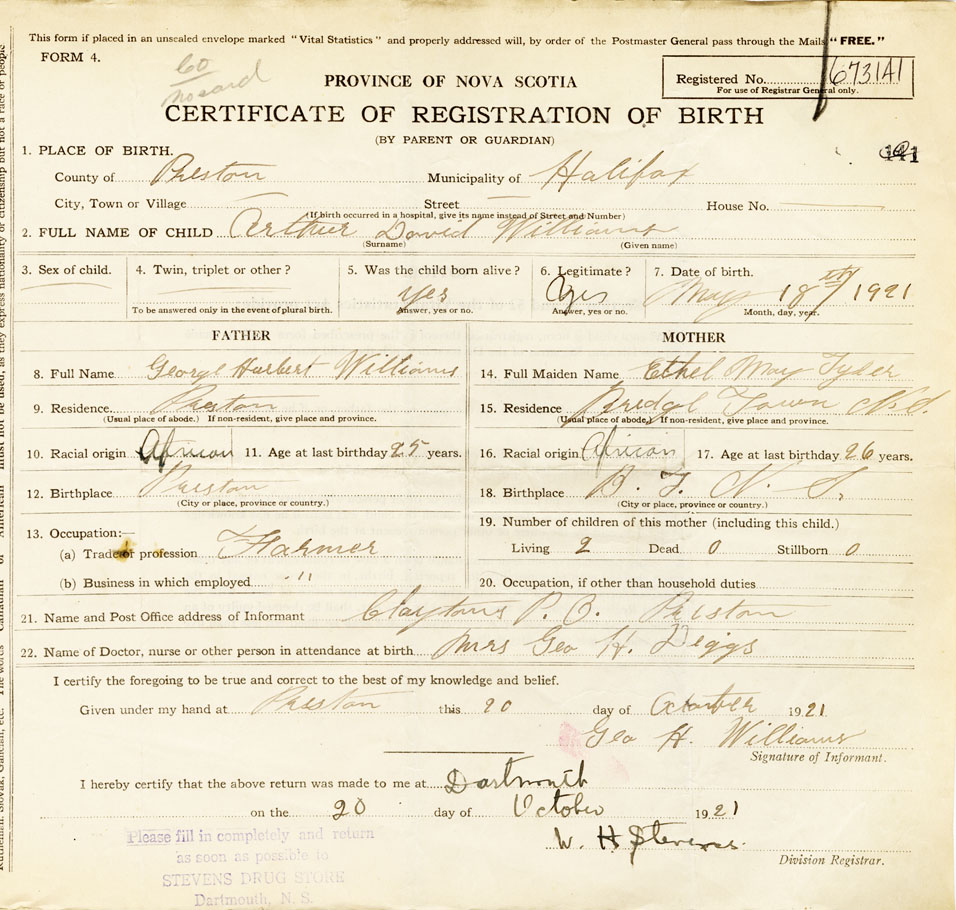 This form if placed in an unsealed envelope marked "Vital Statistics" and properly addressed will, by order of the Postmaster General pass through the Mails "FREE."
FORM 4.
60
PROVINCE OF NOVA SCOTIA
Registered No. 673141
For use of Registrar General only.
CERTIFICATE OF REGISTRATION OF BIRTH
(BY PARENT OR GUARDIAN)
1. PLACE OF BIRTH.
County of Preston Municipality of Halifax
City, Town or Village Street House No.
(If birth occurred in a hospital, give its name instead of Street and Number)
2. FULL NAME OF CHILD Arthur David Williams
(Surname) (Given name)
3. Sex of child. 4. Twin, triplet or other? 5. Was the child born alive? 6. Legitimate? 7. Date of birth.
Yes Yes May 18th/1921
To be answered only in the event of plural birth. Answer, yes or no. Answer, yes or no. Month, day, year.
FATHER MOTHER
8. Full Name George Harbert Williams 14. Full Maiden Name Ethel May Tyler
9. Residence Preston 15. Residence Bridge Town N.S.
(Usual place of abode.) If non-resident, give place and province. (Usual place of abode,) If non-resident, give place and province.
10. Racial origin African 11. Age at last birthday 25 years. 16. Racial origin African 17. Age at last birthday 26 years.
12. Birthplace Preston 18. Birthplace B. T. N. S.
(City or place, province or country.) (City or place, province or country.)
13. Occupation:— 19. Number of children of this mother (including this child.)
(a) Trade or profession Farmer Living 2 Dead 0 Stillborn 0
(b) Business in which employed " 20. Occupation, if other than household duties
21. Name and Post Office address of Informant Claytons P. O. Preston
22. Name of Doctor, nurse or other person in attendance at birth Mrs Geo H. Diggs
I certify the foregoing to be true and correct to the best of my knowledge and belief.
Given under my hand at Preston this 20 day of October 1921
Geo H. Williams
Signature of Informant.
I hereby certify that the above return was made to me at Dartmouth
on the 20 day of October 1921
W. H Stevens.
Division Registrar.
Please fill in completely and return
as soon as possible to
STEVENS DRUG STORE
Dartmouth, N. S.